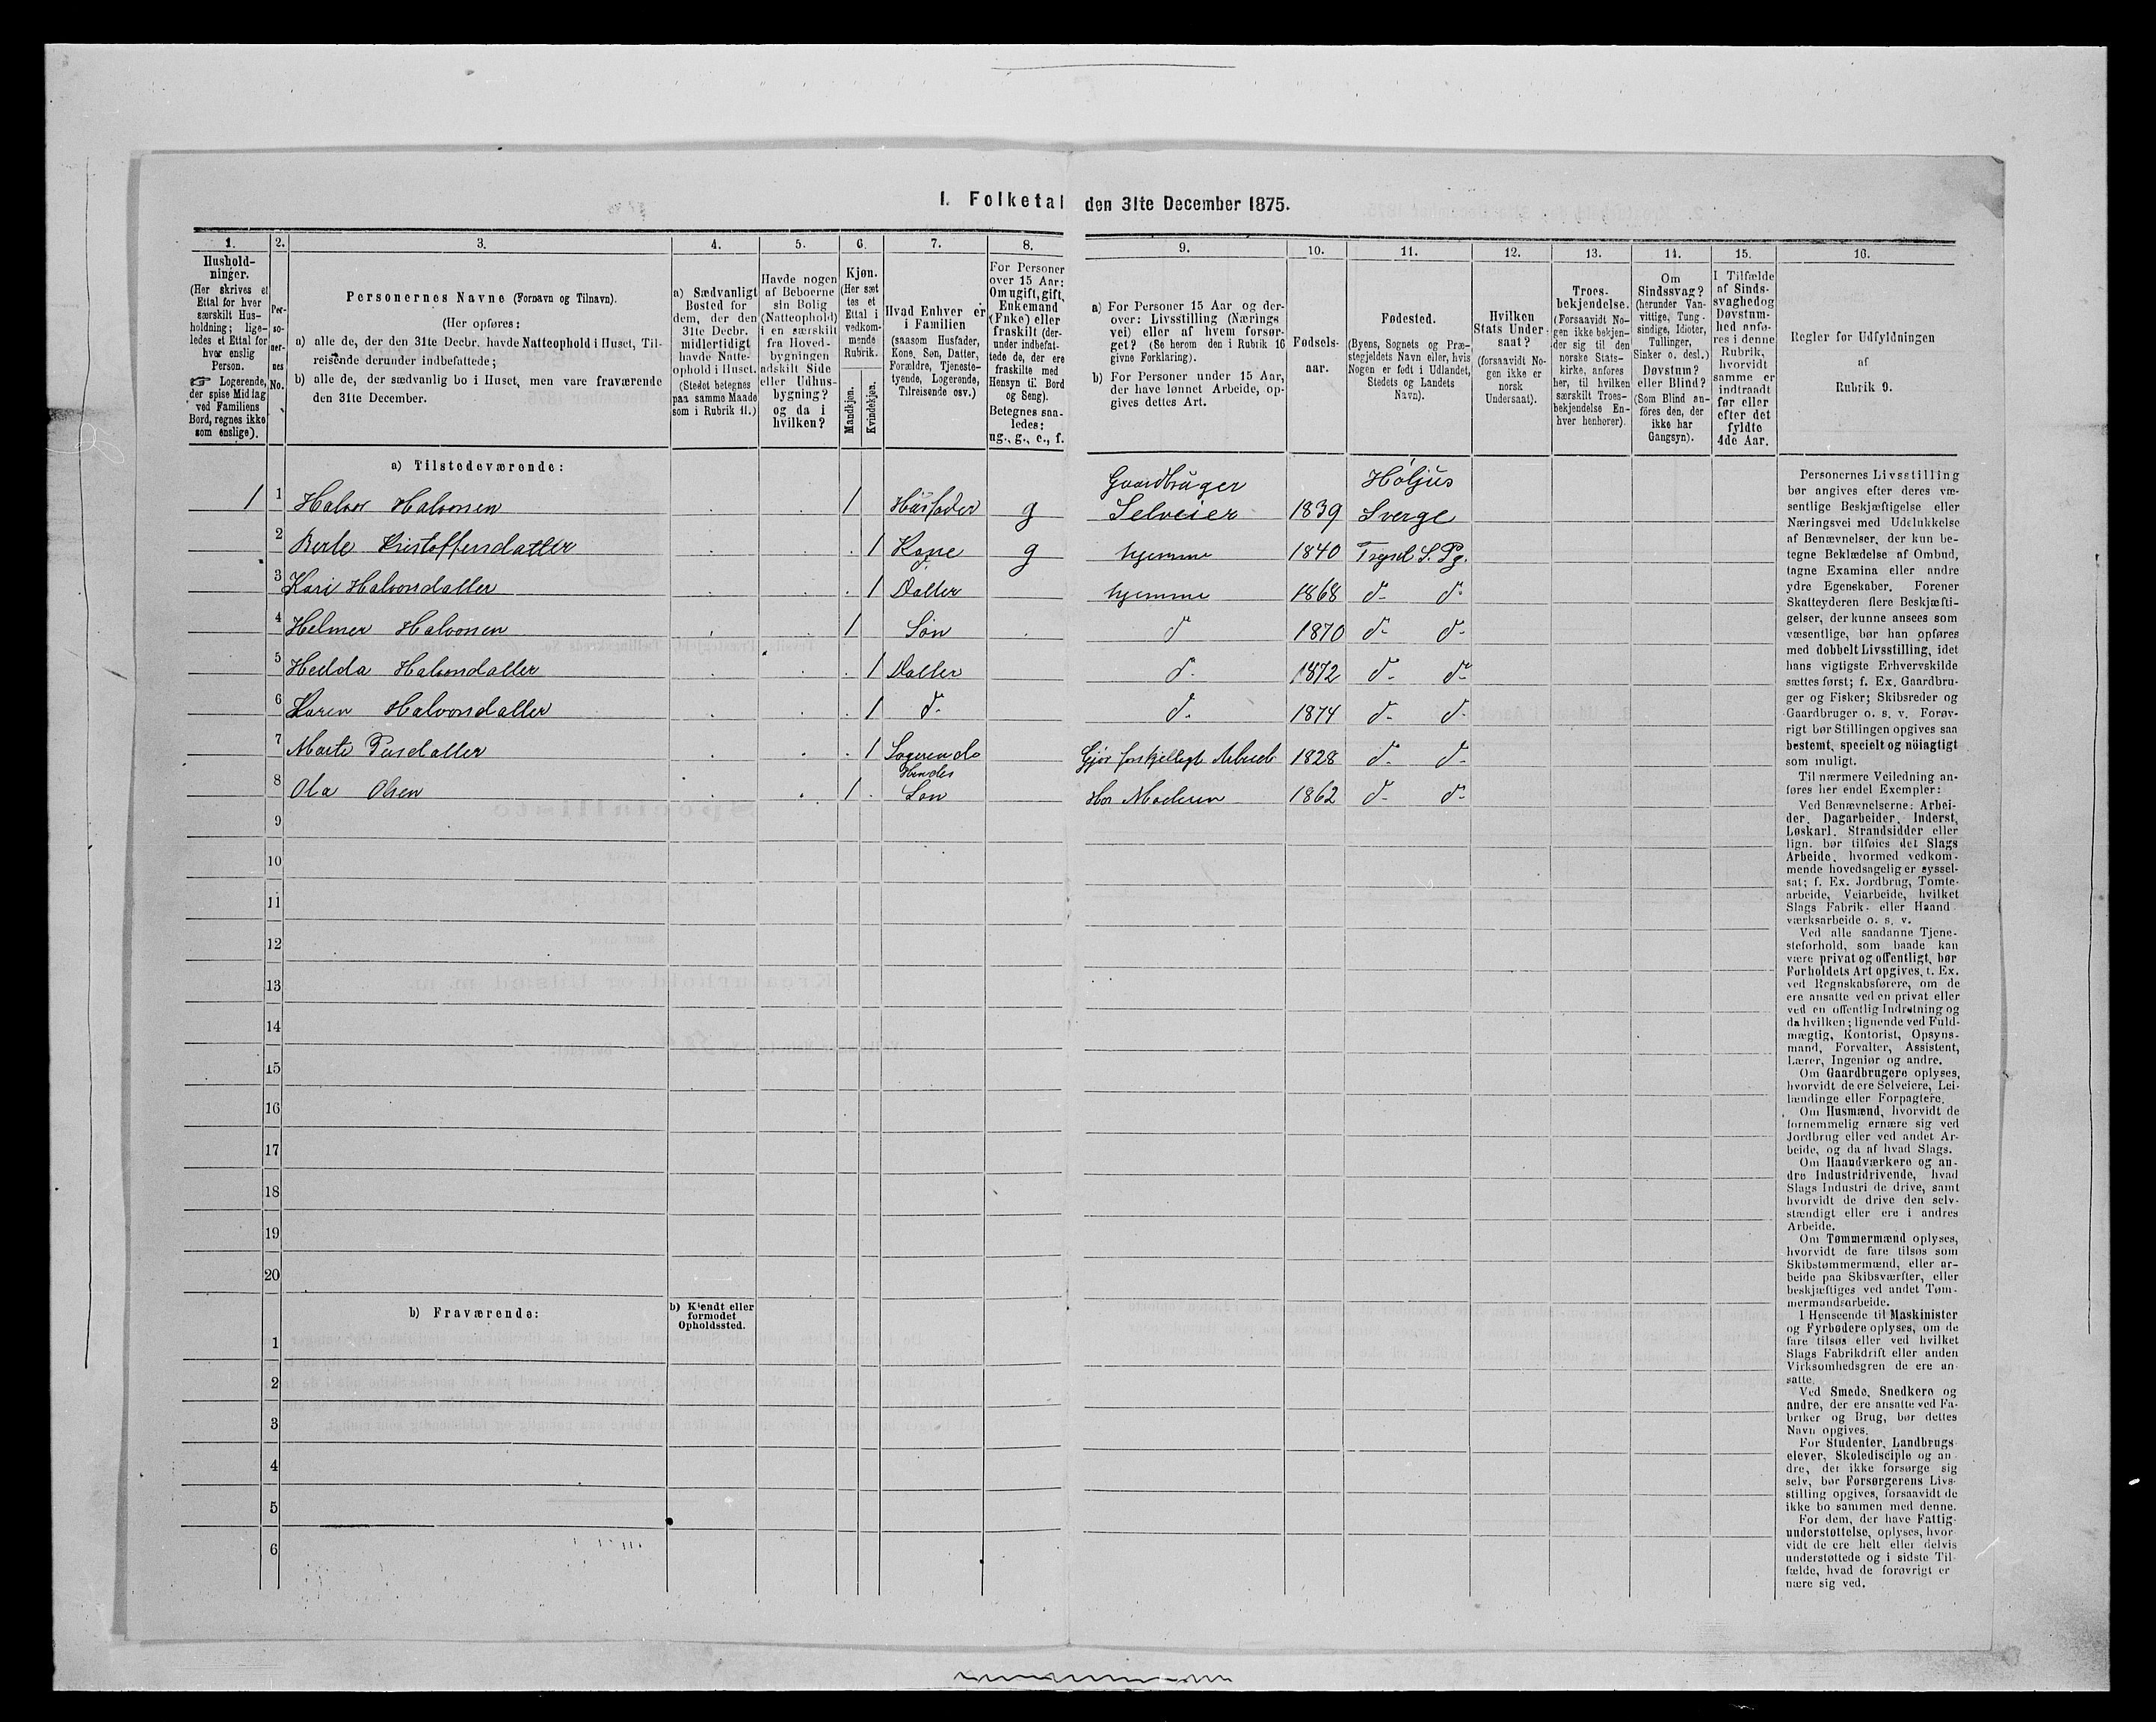 I. Folketal den 31te December 1875.
1.
Hushold-
ninger.
(Her skrives et
Ettal for hver
særskilt Hus-
holdning; lige-
ledes et Ettal for
hver enslig
Person.
☞ Logerende,
der spise Middag
ved Familiens
Bord, regnes ikke
som enslige).
2.
Per-
so-
ner-
nes
No.
3.
Personernes Navne (Fornavn og Tilnavn).
(Her opføres:
a) alle de, der den 31te Decbr. havde Natteophold i Huset, Til-
reisende derunder indbefattede;
b) alle de, der sædvanlig bo i Huset, men vare fraværende
den 31te December.
4.
a) Sædvanligt
Bosted for
dem, der den
31te Decbr.
midlertidigt
havde Natte-
ophold i Huset.
(Stedet betegnes
paa samme Maade
som i Rubrik 11.)
5.
Havde nogen
af Beboerne
sin Bolig
(Natteophold)
i en særskilt
fra Hoved-
bygningen
adskilt Side
eller Udhus-
bygning?
og da i
hvilken?
6.
Kjøn.
(Her sæt
tes et
Ettal i
vedkom-
mende
Rubrik.
Mandkjøn.
Kvindekjøn.
7.
Hvad Enhver er
i Familien
(saasom Husfader,
Kone, Søn, Datter,
Forældre, Tjeneste-
tyende, Logerende,
Tilreisende osv.)
8.
For Personer
over 15 Aar:
Om ugift, gift,
Enkemand
(Enke) eller
fraskilt (der-
under indbefat-
tede de, der ere
fraskilte med
Hensyn til Bord
og Seng).
Betegnes saa-
ledes:
ug., g., e., f.
9.
a) For Personer 15 Aar og der-
over: Livsstilling (Nærings
vei) eller af hvem forsør-
get? (Se herom den i Rubrik 16
givne Forklaring).
b) For Personer under 15 Aar,
der have lønnet Arbeide, op-
gives dettes Art.
10.
Fødsels-
aar.
11.
Fødested.
(Byens, Sognets og Præ-
stegjeldets Navn eller, hvis
Nogen er født i Udlandet,
Stedets og Landets
Navn).
12.
Hvilken
Stats Under-
saat?
(forsaavidt No-
gen ikke er
norsk
Undersaat).
13.
Troes-
bekjendelse.
(Forsaavidt No-
gen ikke bekjen-
der sig til den
norske Stats-
kirke, anføres
her, til hvilken
særskilt Troes-
bekjendelse En-
hver henhører).
14.
Om
Sindssvag?
(herunder Van-
vittige, Tung-
sindige, Idioter,
Tullinger,
Sinker o. desl.)
Døvstum?
eller Blind?
(Som Blind an-
föres den, der
ikke har
Gangsyn).
15.
I Tilfælde
af Sinds-
svaghedog
Døvstum-
hed anfø-
res i denne
Rubrik,
hvorvidt
samme er
indtraadt
før eller
efter det
fyldte
4de Aar.
16.
Regler for Udfyldningen
af
Rubrik 9.
a) Tilstedeværende:
Gaardbruger Høljus
1 1 Halvor Halvorsen 1 Husfader g Selveier 1839 Sverge
2 Berte Kristoffersdatter 1 Kone g hjemme 1840 Trysil S. Pg.
3 Kari Halvorsdatter 1 Datter hjemme 1868 d- d-
4 Helmer Halvorsen 1 Søn d 1870 d- d-
5 Hedda Halvorsdatter 1 Datter d- 1872 d- d-
6 Karen Halvorsdatter 1 d- d- 1874 d- d-
7 Marte Persdatter 1 Logerende Gjør forskjelligt Arbeide 1828 d- d-
Hendes
8 Ola Olsen 1 Søn Hos Moderen 1862 d- d-
9
10
11
12
13
14
15
16
17
18
19
20
b) Fraværende:
b) Kjendt eller
formodet
Opholdssted.
1
2
3
4
5
6
Personernes Livsstilling
bør angives efter deres væ-
sentlige Beskjæftigelse eller
Næringsvei med Udelukkelse
af Benævnelser, der kun be-
tegne Beklædelse af Ombud,
tagne Examina eller andre
ydre Egenskaber. Forener
Skatteyderen flere Beskjæfti-
gelser, der kunne ansees som
væsentlige, bør han opføres
med dobbelt Livsstilling, idet
hans vigtigste Erhvervskilde
sættes først; f. Ex. Gaardbru-
ger og Fisker; Skibsreder og
Gaardbruger o. s. v. Forøv-
rigt bør Stillingen opgives saa
bestemt, specielt og nöiagtigt
som muligt.
Til nærmere Veiledning an-
føres her endel Exempler:
Ved Benævnelserne: Arbei-
der, Dagarbeider, Inderst,
Løskarl, Strandsidder eller
lign. bør tilføies det Slags
Arbeide, hvormed vedkom-
mende hovedsagelig er syssel-
sat; f. Ex. Jordbrug, Tomte-
arbeide, Veiarbeide, hvilket
Slags Fabrik- eller Haand-
værksarbeide o. s. v.
Ved alle saadanne Tjene-
steforhold, som baade kan
være privat og offentligt, bør
Forholdets Art opgives, t. Ex.
ved Regnskabsførere, om de
ere ansatte ved en privat eller
ved en offentlig Indretning og
da hvilken; lignende ved Fuld-
mægtig, Kontorist, Opsyns-
mand, Forvalter, Assistent,
Lærer, Ingeniør og andre.
Om Gaardbrugere oplyses,
hvorvidt de ere Selveiere, Lei-
lændinge eller Forpagtere.
Om Husmænd, hvorvidt de
fornemmelig ernære sig ved
Jordbrug eller ved andet Ar-
beide, og da af hvad Slags.
Om Haandværkere og an-
dre Industridrivende, hvad
Slags Industri de drive, samt
hvorvidt de drive den selv-
stændigt eller ere i andres
Arbeide.
Om Tømmermænd oplyses,
hvorvidt de fare tilsøs som
Skibstømmermænd, eller ar-
beide paa Skibsværfter, eller
beskjæftiges ved andet Tøm-
mermandsarbeide.
I Henseende til Maskinister
og Fyrbødere oplyses, om de
fare tilsøs eller ved hvilket
Slags Fabrikdrift eller anden
Virksomhedsgren de ere an-
satte.
Ved Smede, Snedkere og
andre, der ere ansatte ved Fa-
briker og Brug, bør dettes
Navn opgives.
For Studenter, Landbrugs-
elever, Skoledisciple og an-
dre, der ikke forsørge sig
selv, bør Forsørgerens Livs-
stilling opgives, forsaavidt de
ikke bo sammen med denne.
For dem, der have Fattig-
understøttelse, oplyses, hvor-
vidt de ere helt eller delvis
understøttede og i sidste Til-
fælde, hvad de forøvrigt er
nære sig ved.